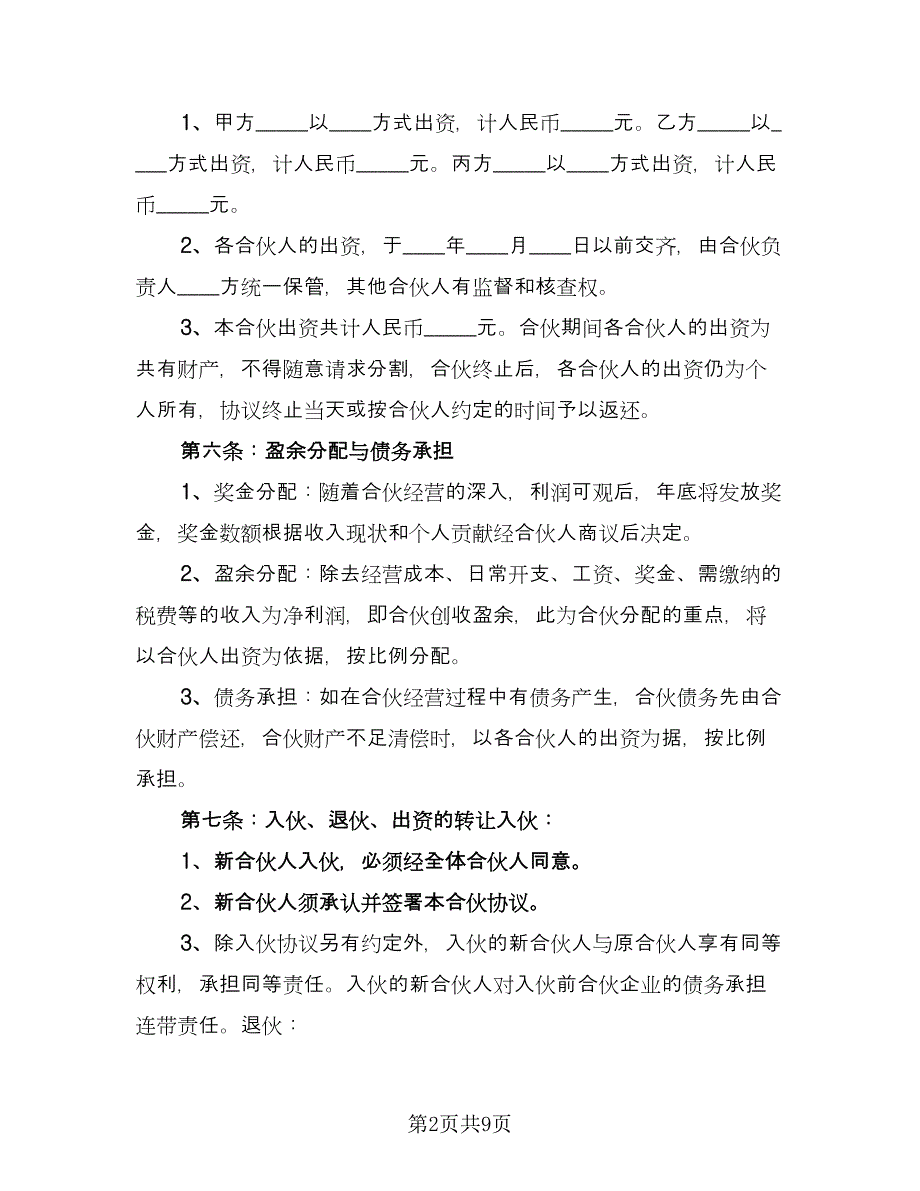 1、甲方_____以____方式出资，计人民币_____元。乙方_____以_
___方式出资，计人民币_____元。丙方_____以____方式出资，计人民
币_____元。
2、各合伙人的出资，于____年____月____日以前交齐，由合伙负
责人____方统一保管，其他合伙人有监督和核查权。
3、本合伙出资共计人民币_____元。合伙期间各合伙人的出资为
共有财产，不得随意请求分割，合伙终止后，各合伙人的出资仍为个
人所有，协议终止当天或按合伙人约定的时间予以返还。
第六条：盈余分配与债务承担
1、奖金分配：随着合伙经营的深入，利润可观后，年底将发放奖
金，奖金数额根据收入现状和个人贡献经合伙人商议后决定。
2、盈余分配：除去经营成本、日常开支、工资、奖金、需缴纳的
税费等的收入为净利润，即合伙创收盈余，此为合伙分配的重点，将
以合伙人出资为依据，按比例分配。
3、债务承担：如在合伙经营过程中有债务产生，合伙债务先由合
伙财产偿还，合伙财产不足清偿时，以各合伙人的出资为据，按比例
承担。
第七条：入伙、退伙、出资的转让入伙：
1、新合伙人入伙，必须经全体合伙人同意。
2、新合伙人须承认并签署本合伙协议。
3、除入伙协议另有约定外，入伙的新合伙人与原合伙人享有同等
权利，承担同等责任。入伙的新合伙人对入伙前合伙企业的债务承担
连带责任。退伙：
第2页共9页